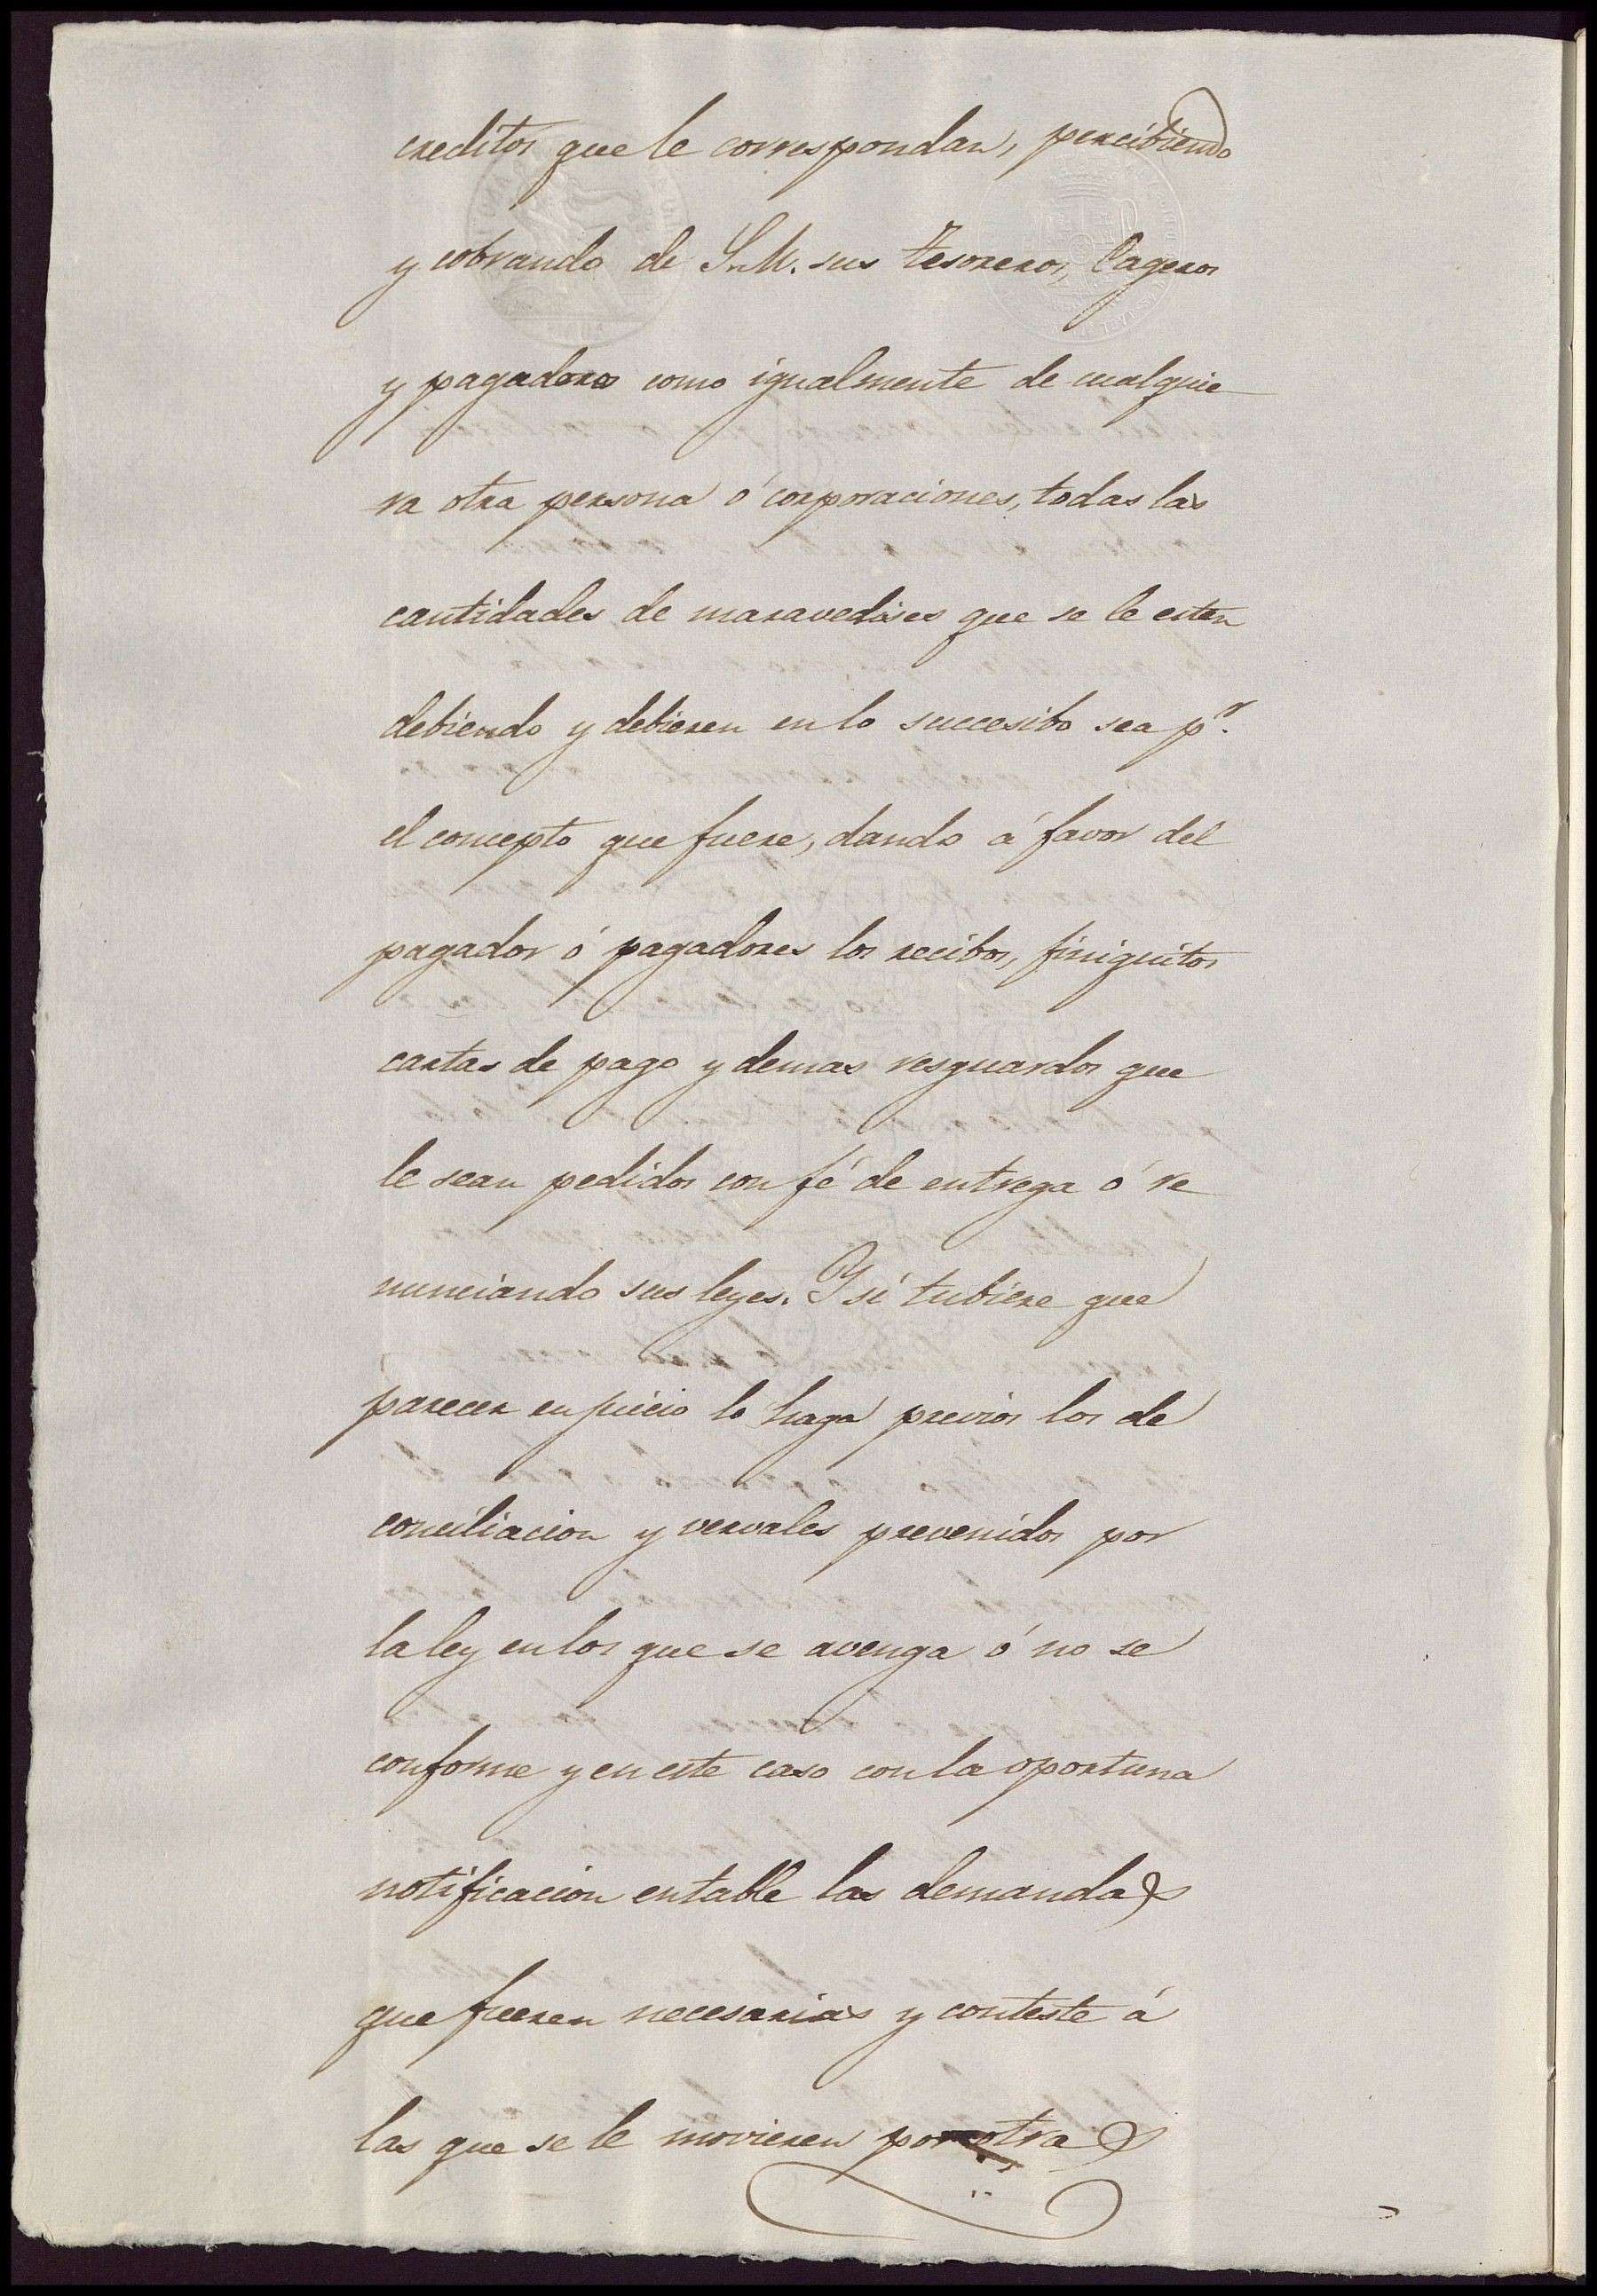 creditos que le correspondan, percibiendo
y cobrando de S.M. sus tesoreros, Cageros
y pagadores como igualmente de cualquie
ra otra persona ó corporaciones, todas las
cantidades de maravedises que se le esten
debiendo y debieren en lo succesibo sea pr.
el concepto que fuere, dando á favor del
pagador ó pagadores los recibos, finiquitos
cartas de pago y demas resguardos que
le sean pedidos con fé de entrega ó re
nunciando sus leyes. Y si tubiere que
parecer en juicio lo haga previos los de
conciliacion y vervales prevenidos por
la ley en los que se avenga ó no se
conforme y en este caso con la oportuna
notificacion entable las demandas
que fueren necesarias y conteste á
las que se le movieren por otras